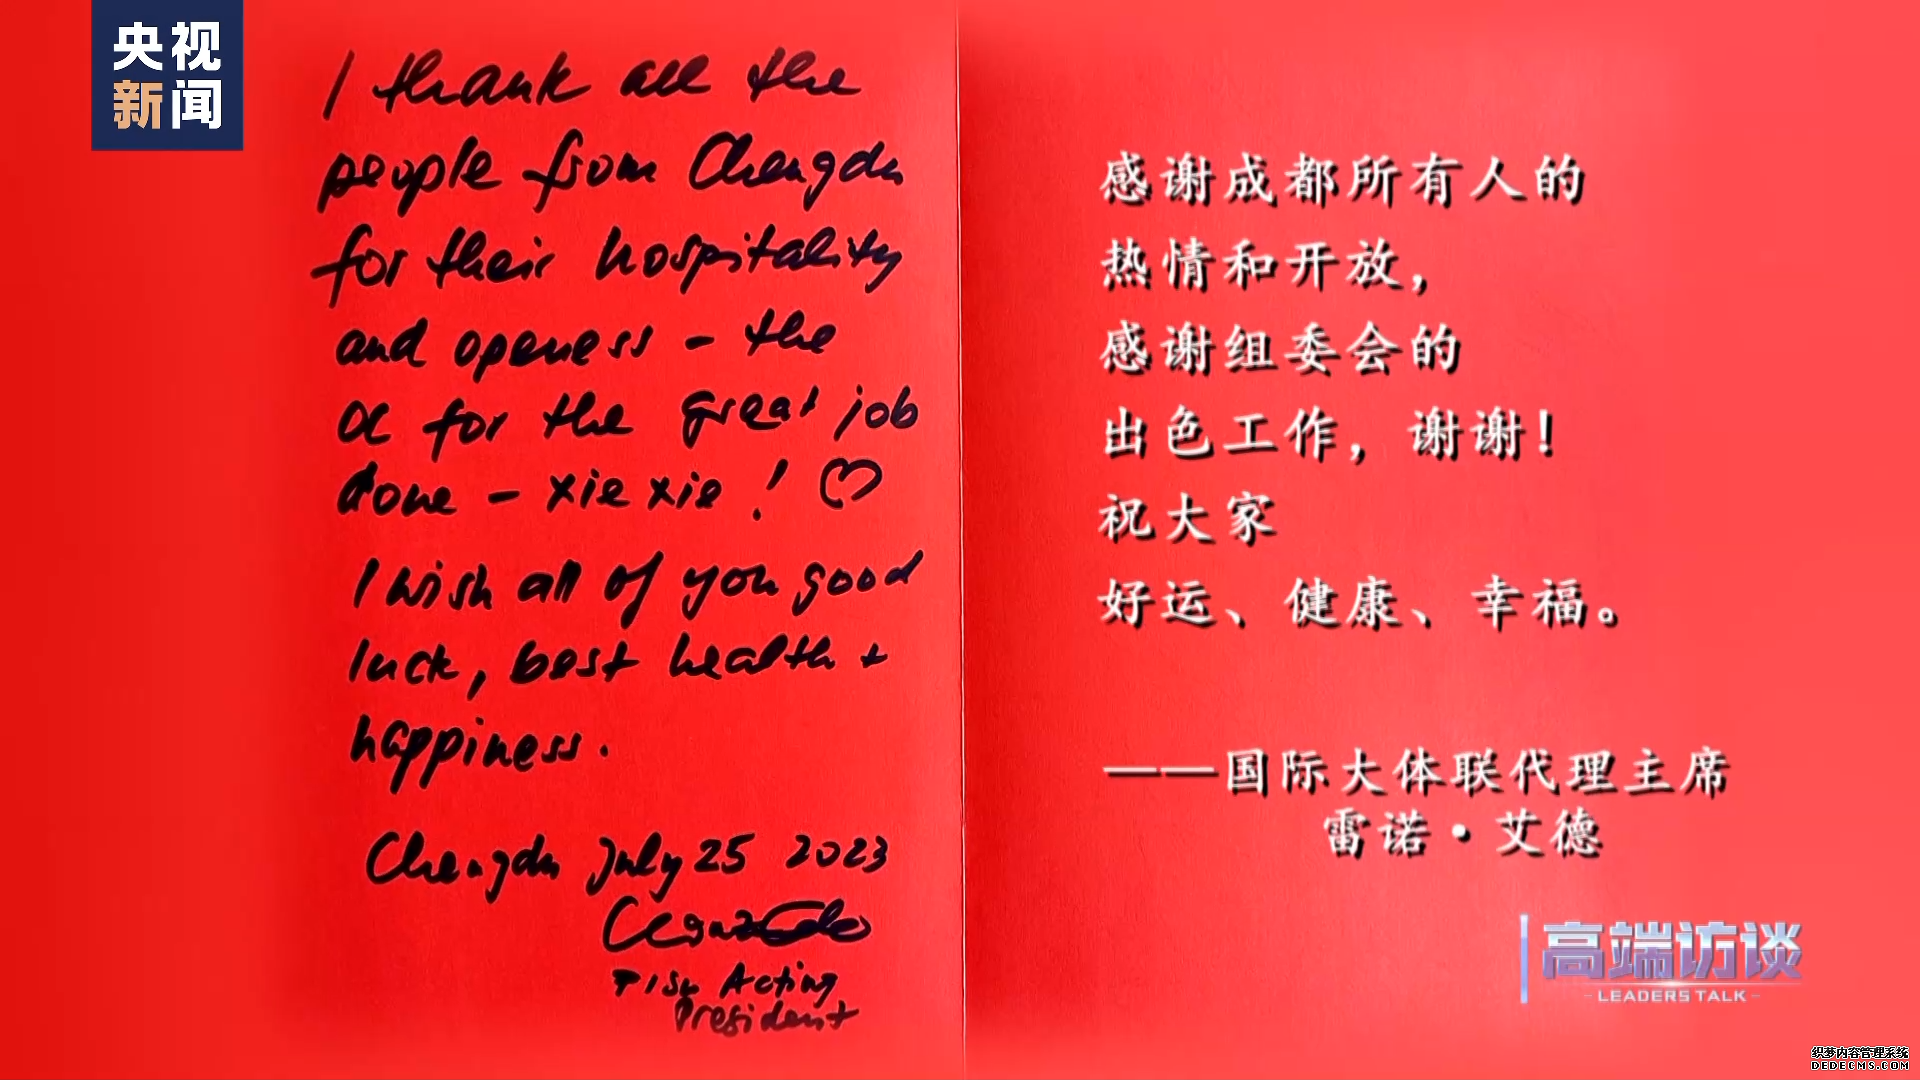 央视
新闻
I thank all the
people from Chengdu
for their hospitality
and openess - the
OC for the great job
done - xie xie ! ♡
I wish all of you good
luck, best health +
happiness.
Chengdu July 25 2023
FISU Acting
President
感谢成都所有人的
热情和开放，
感谢组委会的
出色工作，谢谢！
祝大家
好运、健康、幸福。
——国际大体联代理主席
雷诺·艾德
高端访谈
- LEADERS TALK -
织梦内容管理系统
DEDECMS.COM